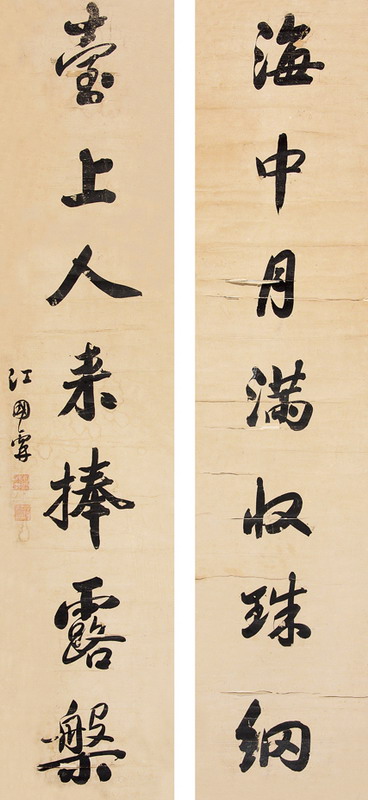 海中月滿收珠網
臺上人来捧露槃
江國霖